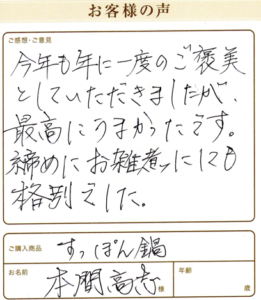 お客様の声
ご感想・ご意見
今年も年に一度のご褒美
としていただきましたが、
最高にうまかったです。
締めにお雑煮にしても
格別でした。
ご購入商品
すっぽん鍋
お名前
本間高志
様
年齢
歳